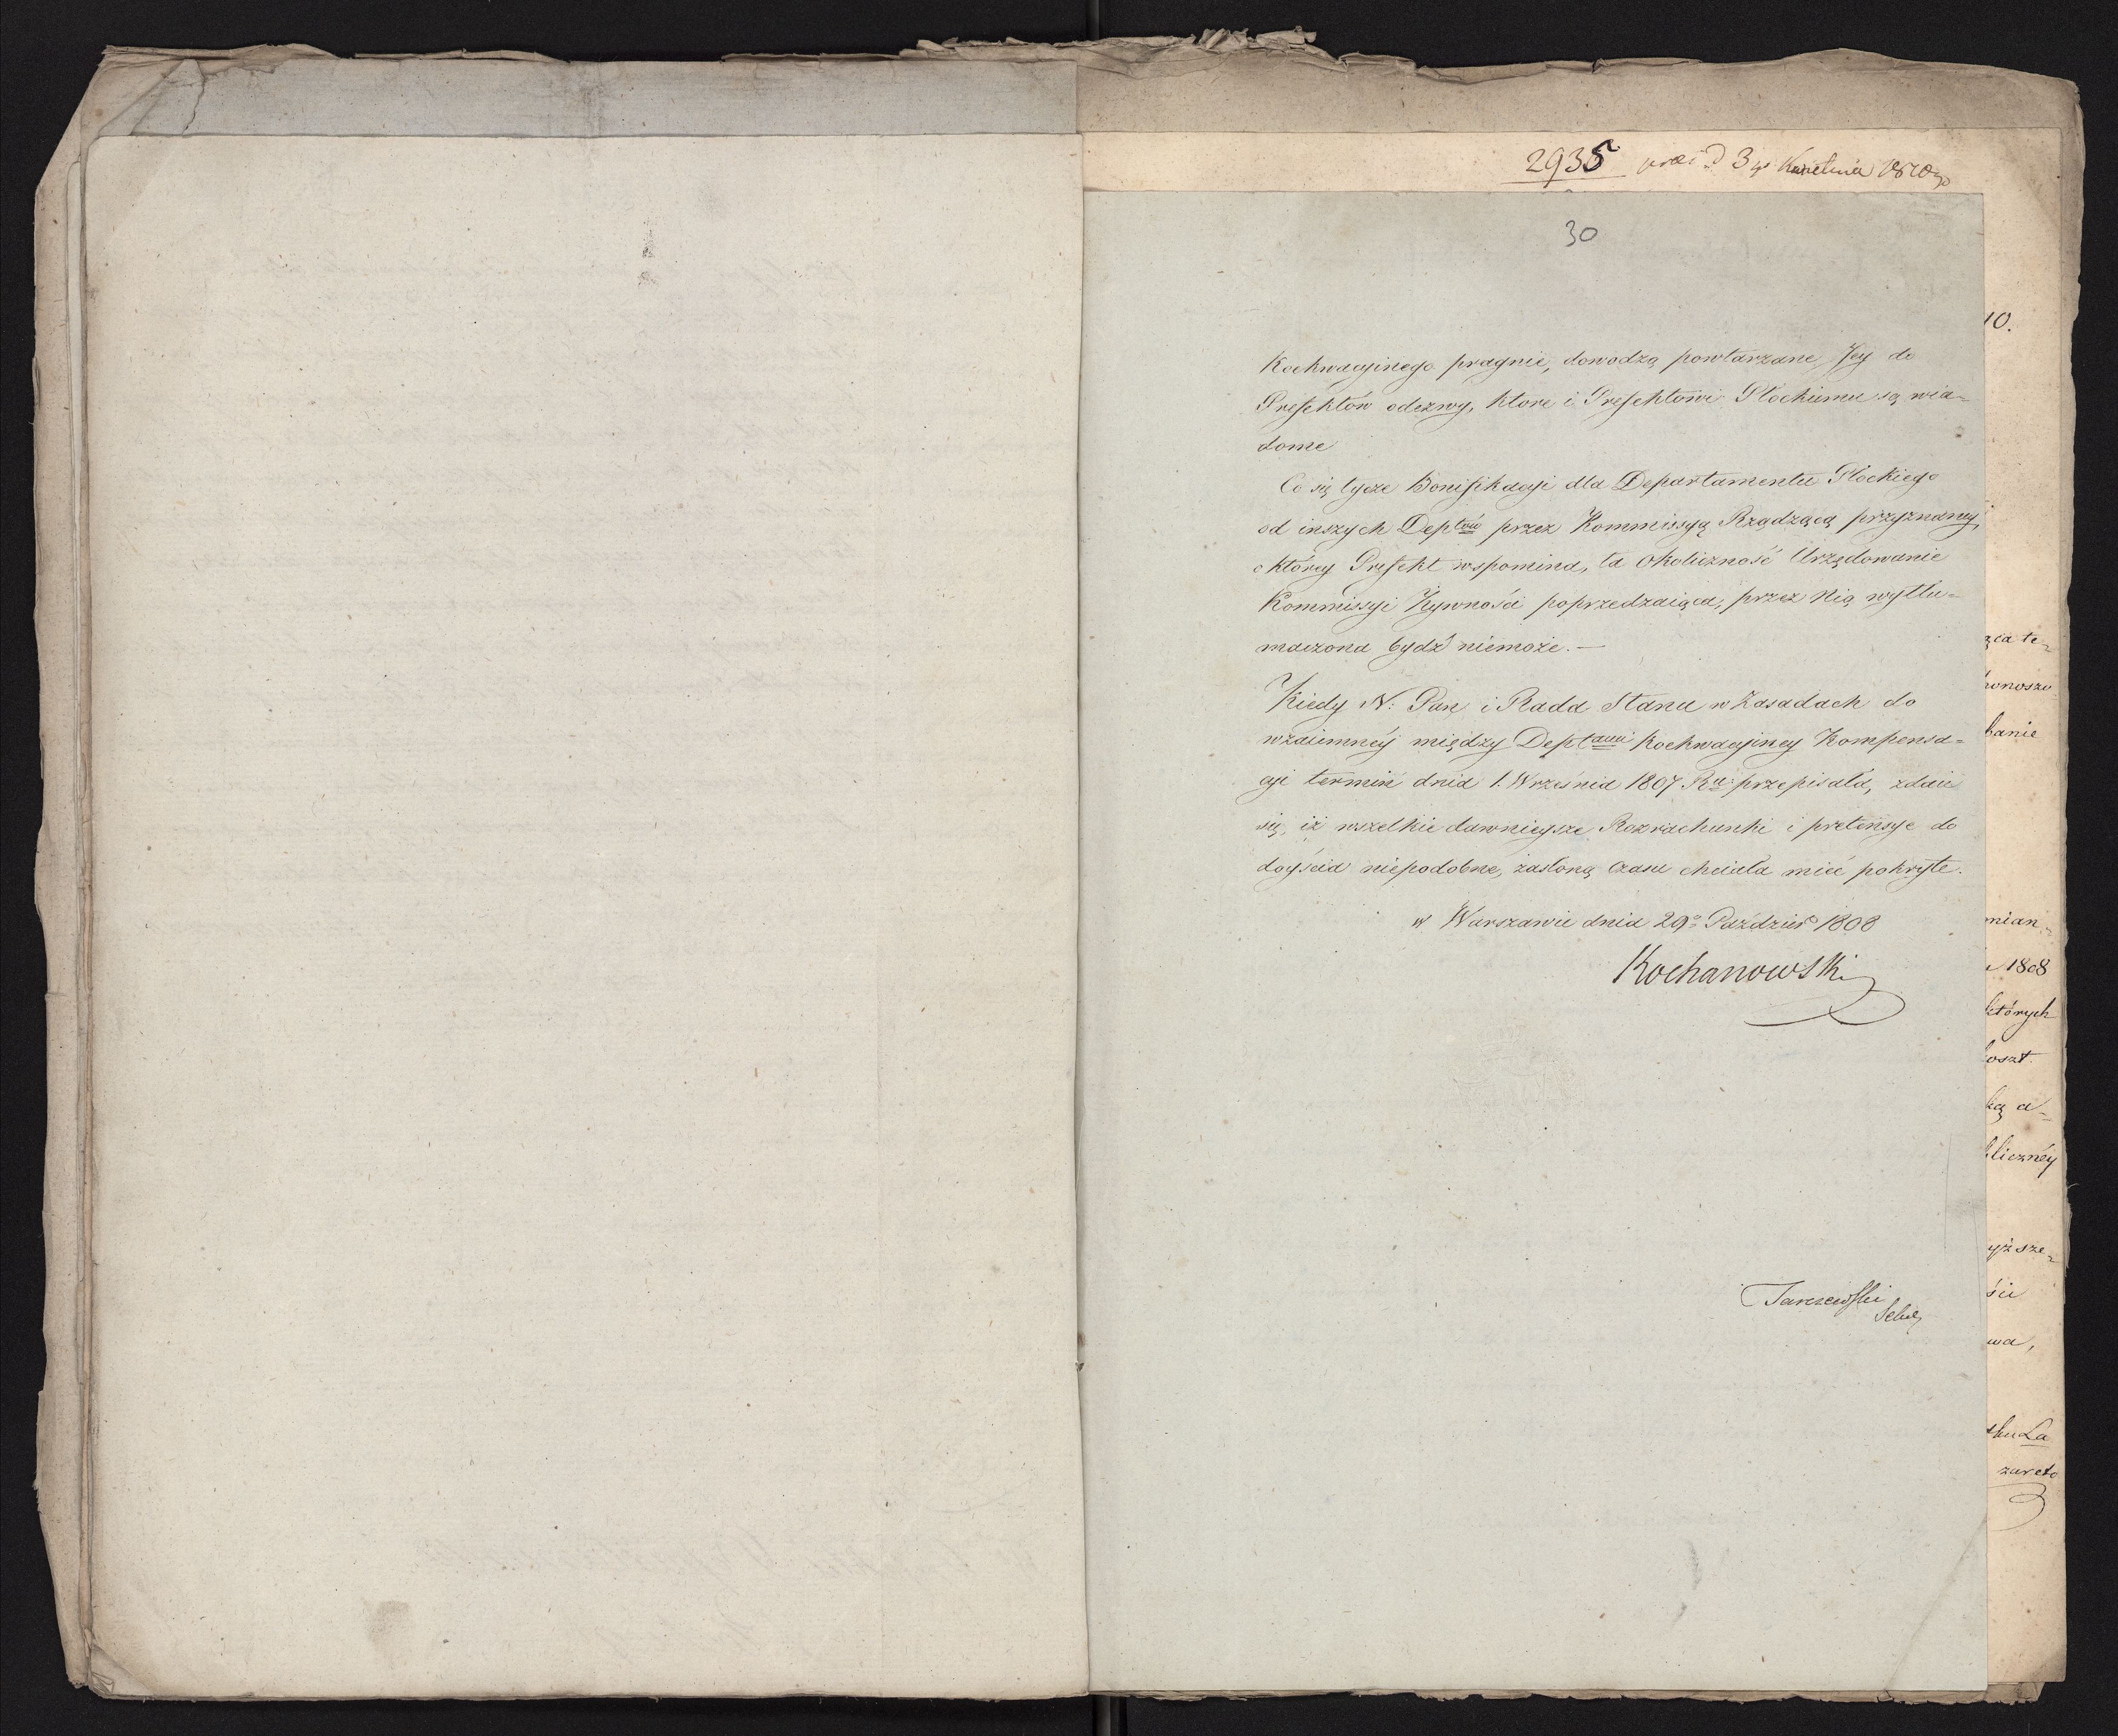 2935 praes d 3go Kwietnia 1810go
30
Koekwacyinego pragnie, dowodzą powtarzane Jey do
Prefektów odezwy, ktore i Prefektowi Płockiemu są wia=
dome
Co się tycze Bonifikacyi dla Departamentu Płockiego
od inszych Deptów przez Kommissyą Rządzącą przyznaney,
o którey Prefekt wspomina, ta okoliczność Urzędowanie
Kommissyi Żywności poprzedzaiąca, przez Nią wytłu=
maczona bydź niemoże. —
Kiedy N: Pan i Rada Stanu w Zasadach do
wzaiemnéy między Deptami Koekwacyiney Kompensa=
cyi termin dnia 1. Września 1807 Ru: przepisała, zdaie
się, iż wszelkie dawnieysze Rozrachunki i pretensye do
doyścia niepodobne, zasłoną czasu chciała mieć pokryte.
w Warszawie dnia 29o Paździera 1808
Kochanowski
Tarczewski
Sekr.
10.
ąca te=
banie
mian
1808
których
koszt.
ką a=
blicznéy
yższe=
ści
wa,
La
zareto